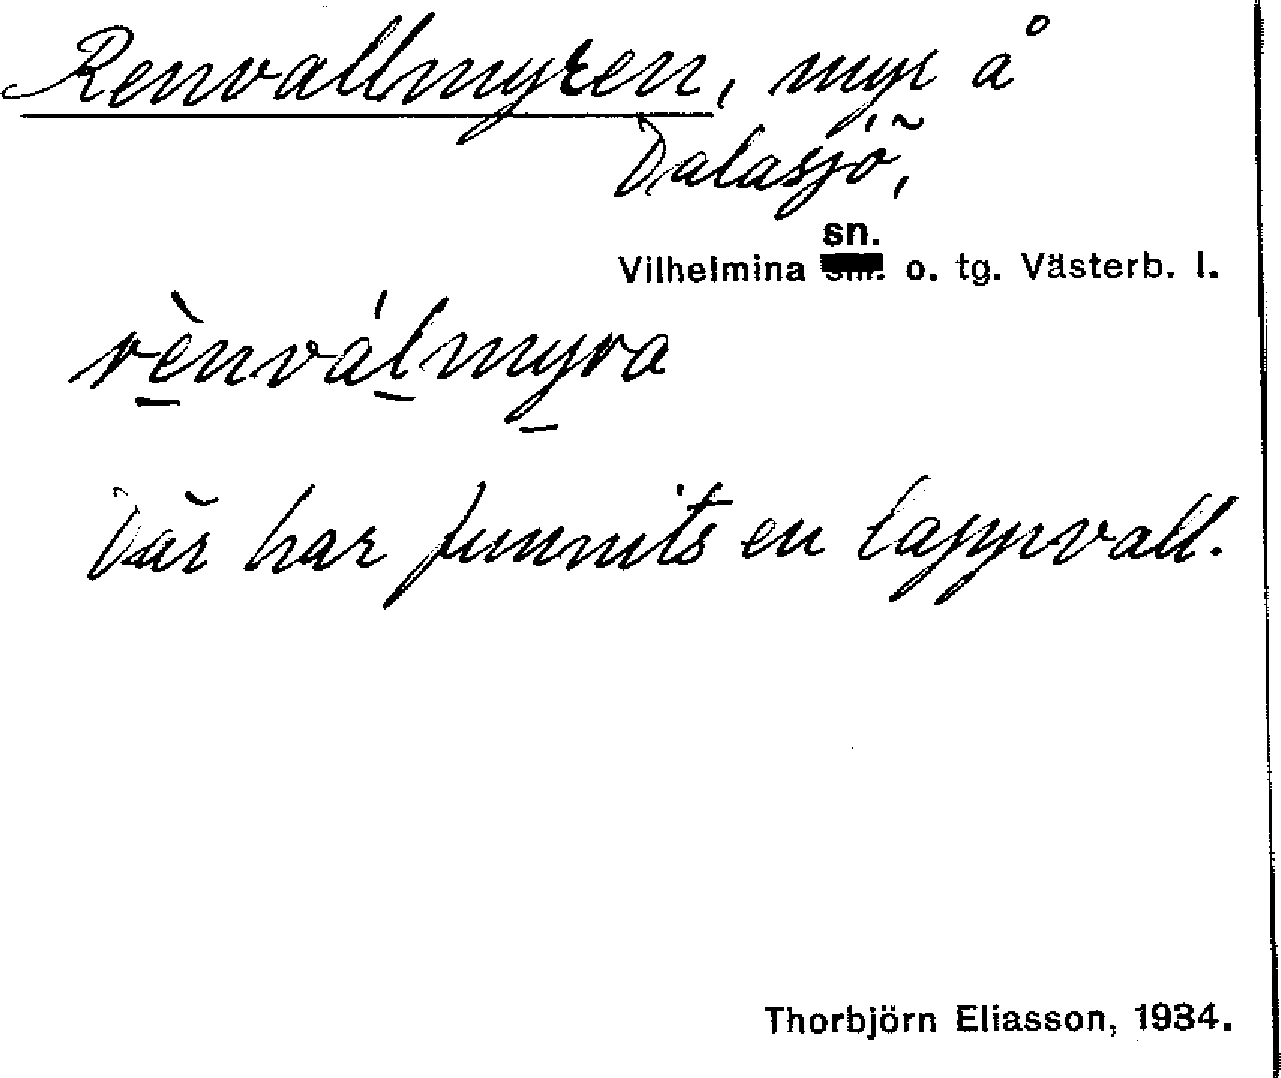 Renvallmyren, myr å
Dalasjö,
sn.
Vilhelmina o. tg. Västerb. l.
rènválmyra
Där har funnits en lappvall.
Thorbjörn Eliasson, 1934.